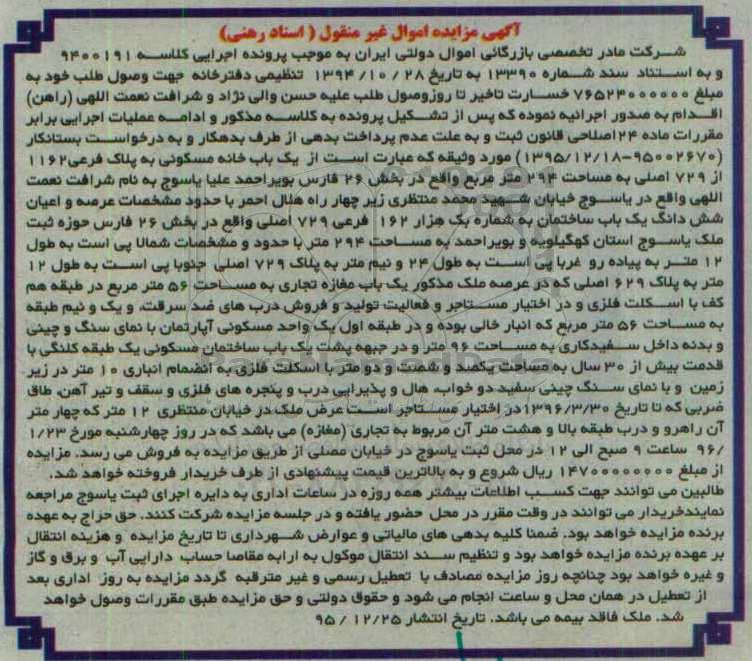 آگهی مزایده اموال غیر منقول ( اسناد رهنی)
شرکت مادر تخصصی بازرگانی اموال دولتی ایران به موجب پرونده اجرایی کلاسه ۹۴۰۰۱۹۱
و به استناد سند شماره ۱۳۳۹۰ به تاریخ ۲۸ / ۱۰ / ۱۳۹۴ تنظیمی دفترخانه جهت وصول طلب خود به
مبلغ ۷۶۵۲۴۰۰۰۰۰۰ خسارت تاخیر تا روزوصول طلب علیه حسن والی نژاد و شرافت نعمت اللهی (راهن)
اقدام به صدور اجرائیه نموده که پس از تشکیل پرونده به کلاسه مذکور و ادامه عملیات اجرایی برابر
مقررات ماده ۲۴اصلاحی قانون ثبت و به علت عدم پرداخت بدهی از طرف بدهکار و به درخواست بستانکار
(۹۵۰۰۲۶۷۰-۱۳۹۵/۱۲/۱۸) مورد وثیقه که عبارت است از یک باب خانه مسکونی به پلاک فرعی۱۱۶۲
از ۷۲۹ اصلی به مساحت ۲۹۴ متر مربع واقع در بخش ۲۶ فارس بویراحمد علیا یاسوج به نام شرافت نعمت
اللهی واقع در یاسوج خیابان شهید محمد منتظری زیر چهار راه هلال احمر با حدود مشخصات عرصه و اعیان
شش دانگ یک باب ساختمان به شماره یک هزار ۱۶۲ فرعی ۷۲۹ اصلی واقع در بخش ۲۶ فارس حوزه ثبت
ملک یاسوج استان کهگیلویه و بویراحمد به مساحت ۲۹۴ متر با حدود و مشخصات شمالا پی است به طول
۱۲ متر به پیاده رو غربا پی است به طول ۲۴ و نیم متر به پلاک ۷۲۹ اصلی جنوبا پی است به طول ۱۲
متر به پلاک ۶۲۹ اصلی که در عرصه ملک مذکور یک باب مغازه تجاری به مساحت ۵۶ متر مربع در طبقه هم
کف با اسکلت فلزی و در اختیار مستاجر و فعالیت تولید و فروش درب های ضد سرقت، و یک و نیم طبقه
به مساحت ۵۶ متر مربع که انبار خالی بوده و در طبقه اول یک واحد مسکونی آپارتمان با نمای سنگ و چینی
و بدنه داخل سفیدکاری به مساحت ۹۶ متر و در جبهه پشت یک باب ساختمان مسکونی یک طبقه کلنگی با
قدمت بیش از ۳۰ سال به مساحت یکصد و شصت و دو متر با اسکلت فلزی به انضمام انباری ۱۰ متر در زیر
زمین و با نمای سنگ چینی سفید دو خواب، هال و پذیرایی درب و پنجره های فلزی و سقف و تیر آهن، طاق
ضربی که تا تاریخ ۱۳۹۶/۳/۳۰در اختیار مستاجر است عرض ملک در خیابان منتظری ۱۲ متر که چهار متر
آن راهرو و درب طبقه بالا و هشت متر آن مربوط به تجاری (مغازه) می باشد که در روز چهارشنبه مورخ ۱/۲۳
/۹۶ ساعت ۹ صبح الی ۱۲ در محل ثبت یاسوج در خیابان مصلی از طریق مزایده به فروش می رسد. مزایده
از مبلغ ۱۴۷۰۰۰۰۰۰۰۰ ریال شروع و به بالاترین قیمت پیشنهادی از طرف خریدار فروخته خواهد شد.
طالبین می توانند جهت کسب اطلاعات بیشتر همه روزه در ساعات اداری به دایره اجرای ثبت یاسوج مراجعه
نمایندخریدار می توانند در وقت مقرر در محل حضور یافته و در جلسه مزایده شرکت کنند. حق حراج به عهده
برنده مزایده خواهد بود. ضمنا کلیه بدهی های مالیاتی و عوارض شهرداری تا تاریخ مزایده و هزینه انتقال
بر عهده برنده مزایده خواهد بود و تنظیم سند انتقال موکول به ارایه مفاصا حساب دارایی آب و برق و گاز
و غیره خواهد بود چنانچه روز مزایده مصادف با تعطیل رسمی و غیر مترقبه گردد مزایده به روز اداری بعد
از تعطیل در همان محل و ساعت انجام می شود و حقوق دولتی و حق مزایده طبق مقررات وصول خواهد
شد. ملک فاقد بیمه می باشد. تاریخ انتشار ۲۵/ ۱۲ / ۹۵